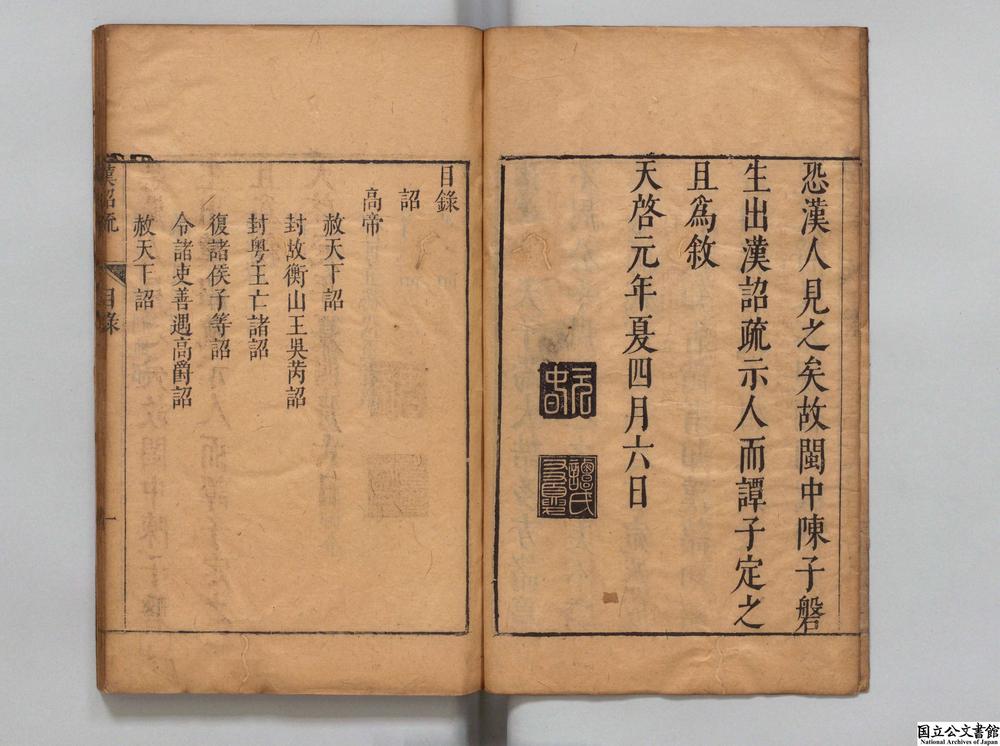 恐漢人見之矣故閩中陳子磐
生出漢詔疏示人而譚子定之
且爲敘
天啓元年夏四月六日
譚氏
目錄
詔
高帝
赦天下詔
封故衡山王吳芮詔
封粵王亡諸詔
復諸侯子等詔
令諸吏善遇高爵詔
赦天下詔
漢詔疏
目錄
一
国立公文書館
National Archives of Japan